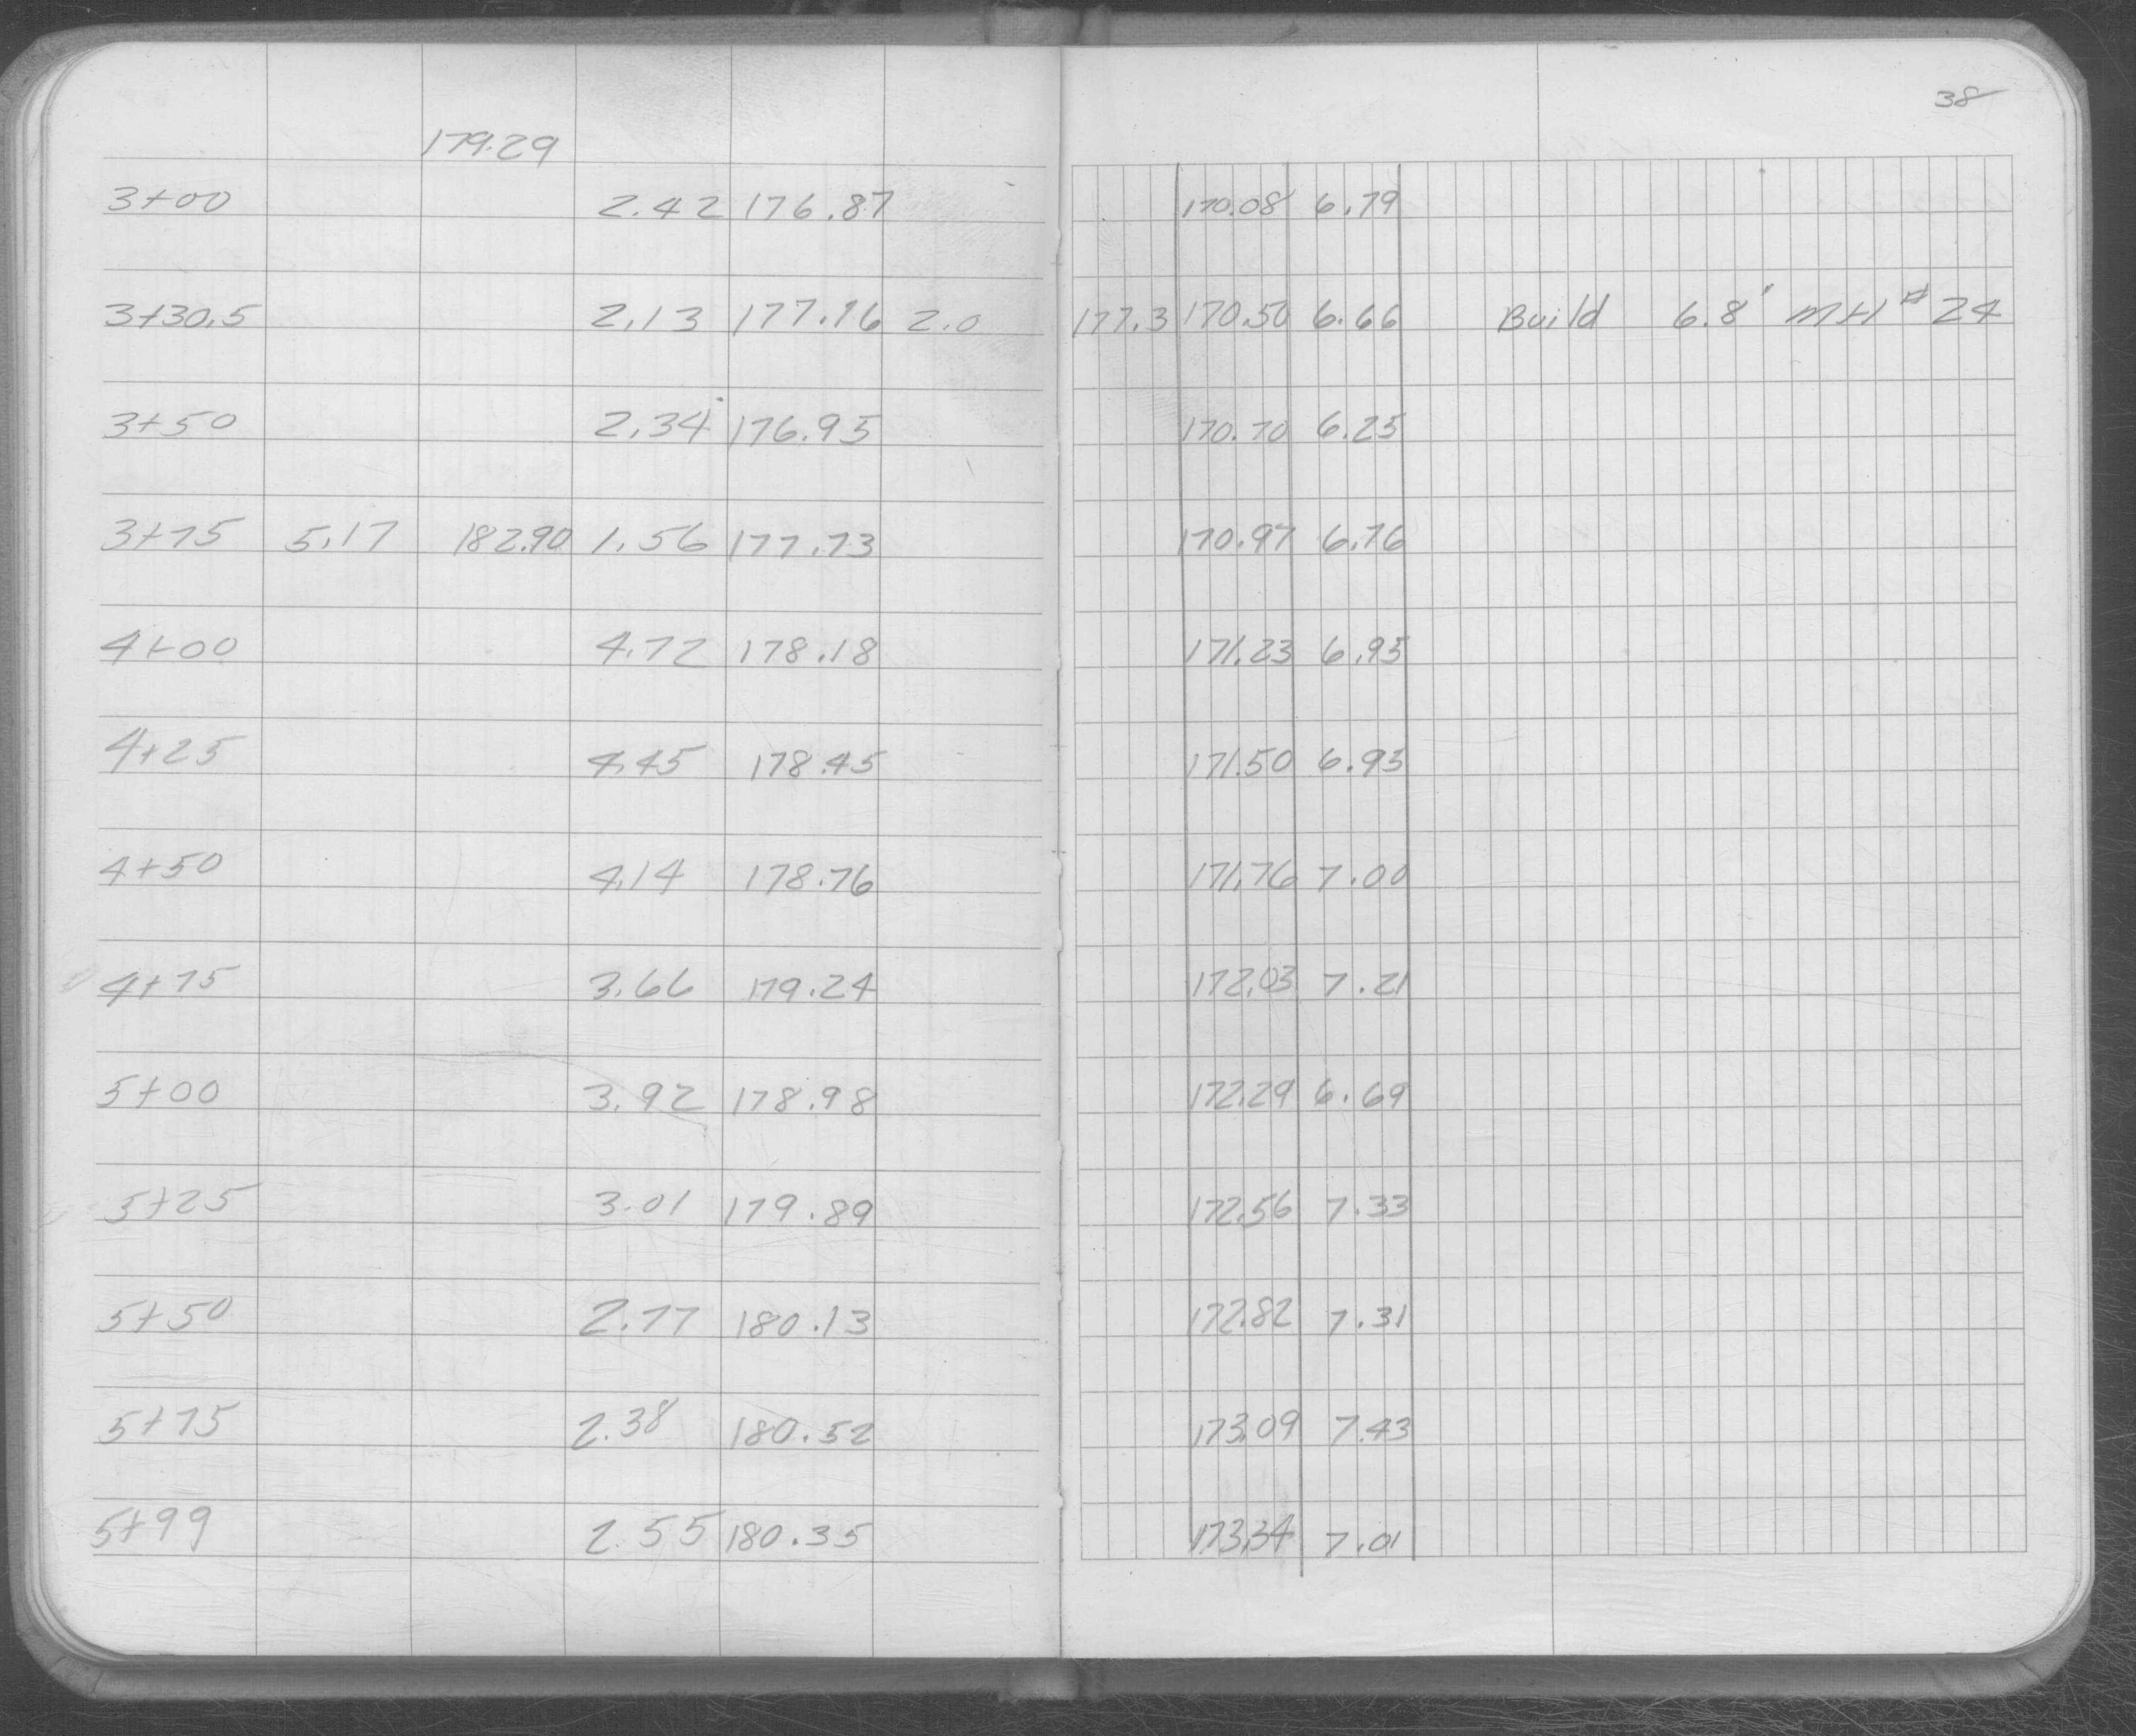 38
179.29
3+00 2.42 176.87 170.08 6.79
3+30.5 2.13 177.16 2.0 177.3 170.50 6.66 Build 6.8' MH #24
3+50 2.34 176.95 170.70 6.25
3+75 5.17 182.90 1.56 177.73 170.97 6.76
4+00 4.72 178.18 171.23 6.95
4+25 4.45 178.45 171.50 6.95
4+50 4.14 178.76 171.76 7.00
4+75 3.66 179.24 172.03 7.21
5+00 3.92 178.98 172.29 6.69
5+25 3.01 179.89 172.56 7.33
5+50 2.77 180.13 172.82 7.31
5+75 2.38 180.52 173.09 7.43
5+99 2.55 180.35 173.34 7.01